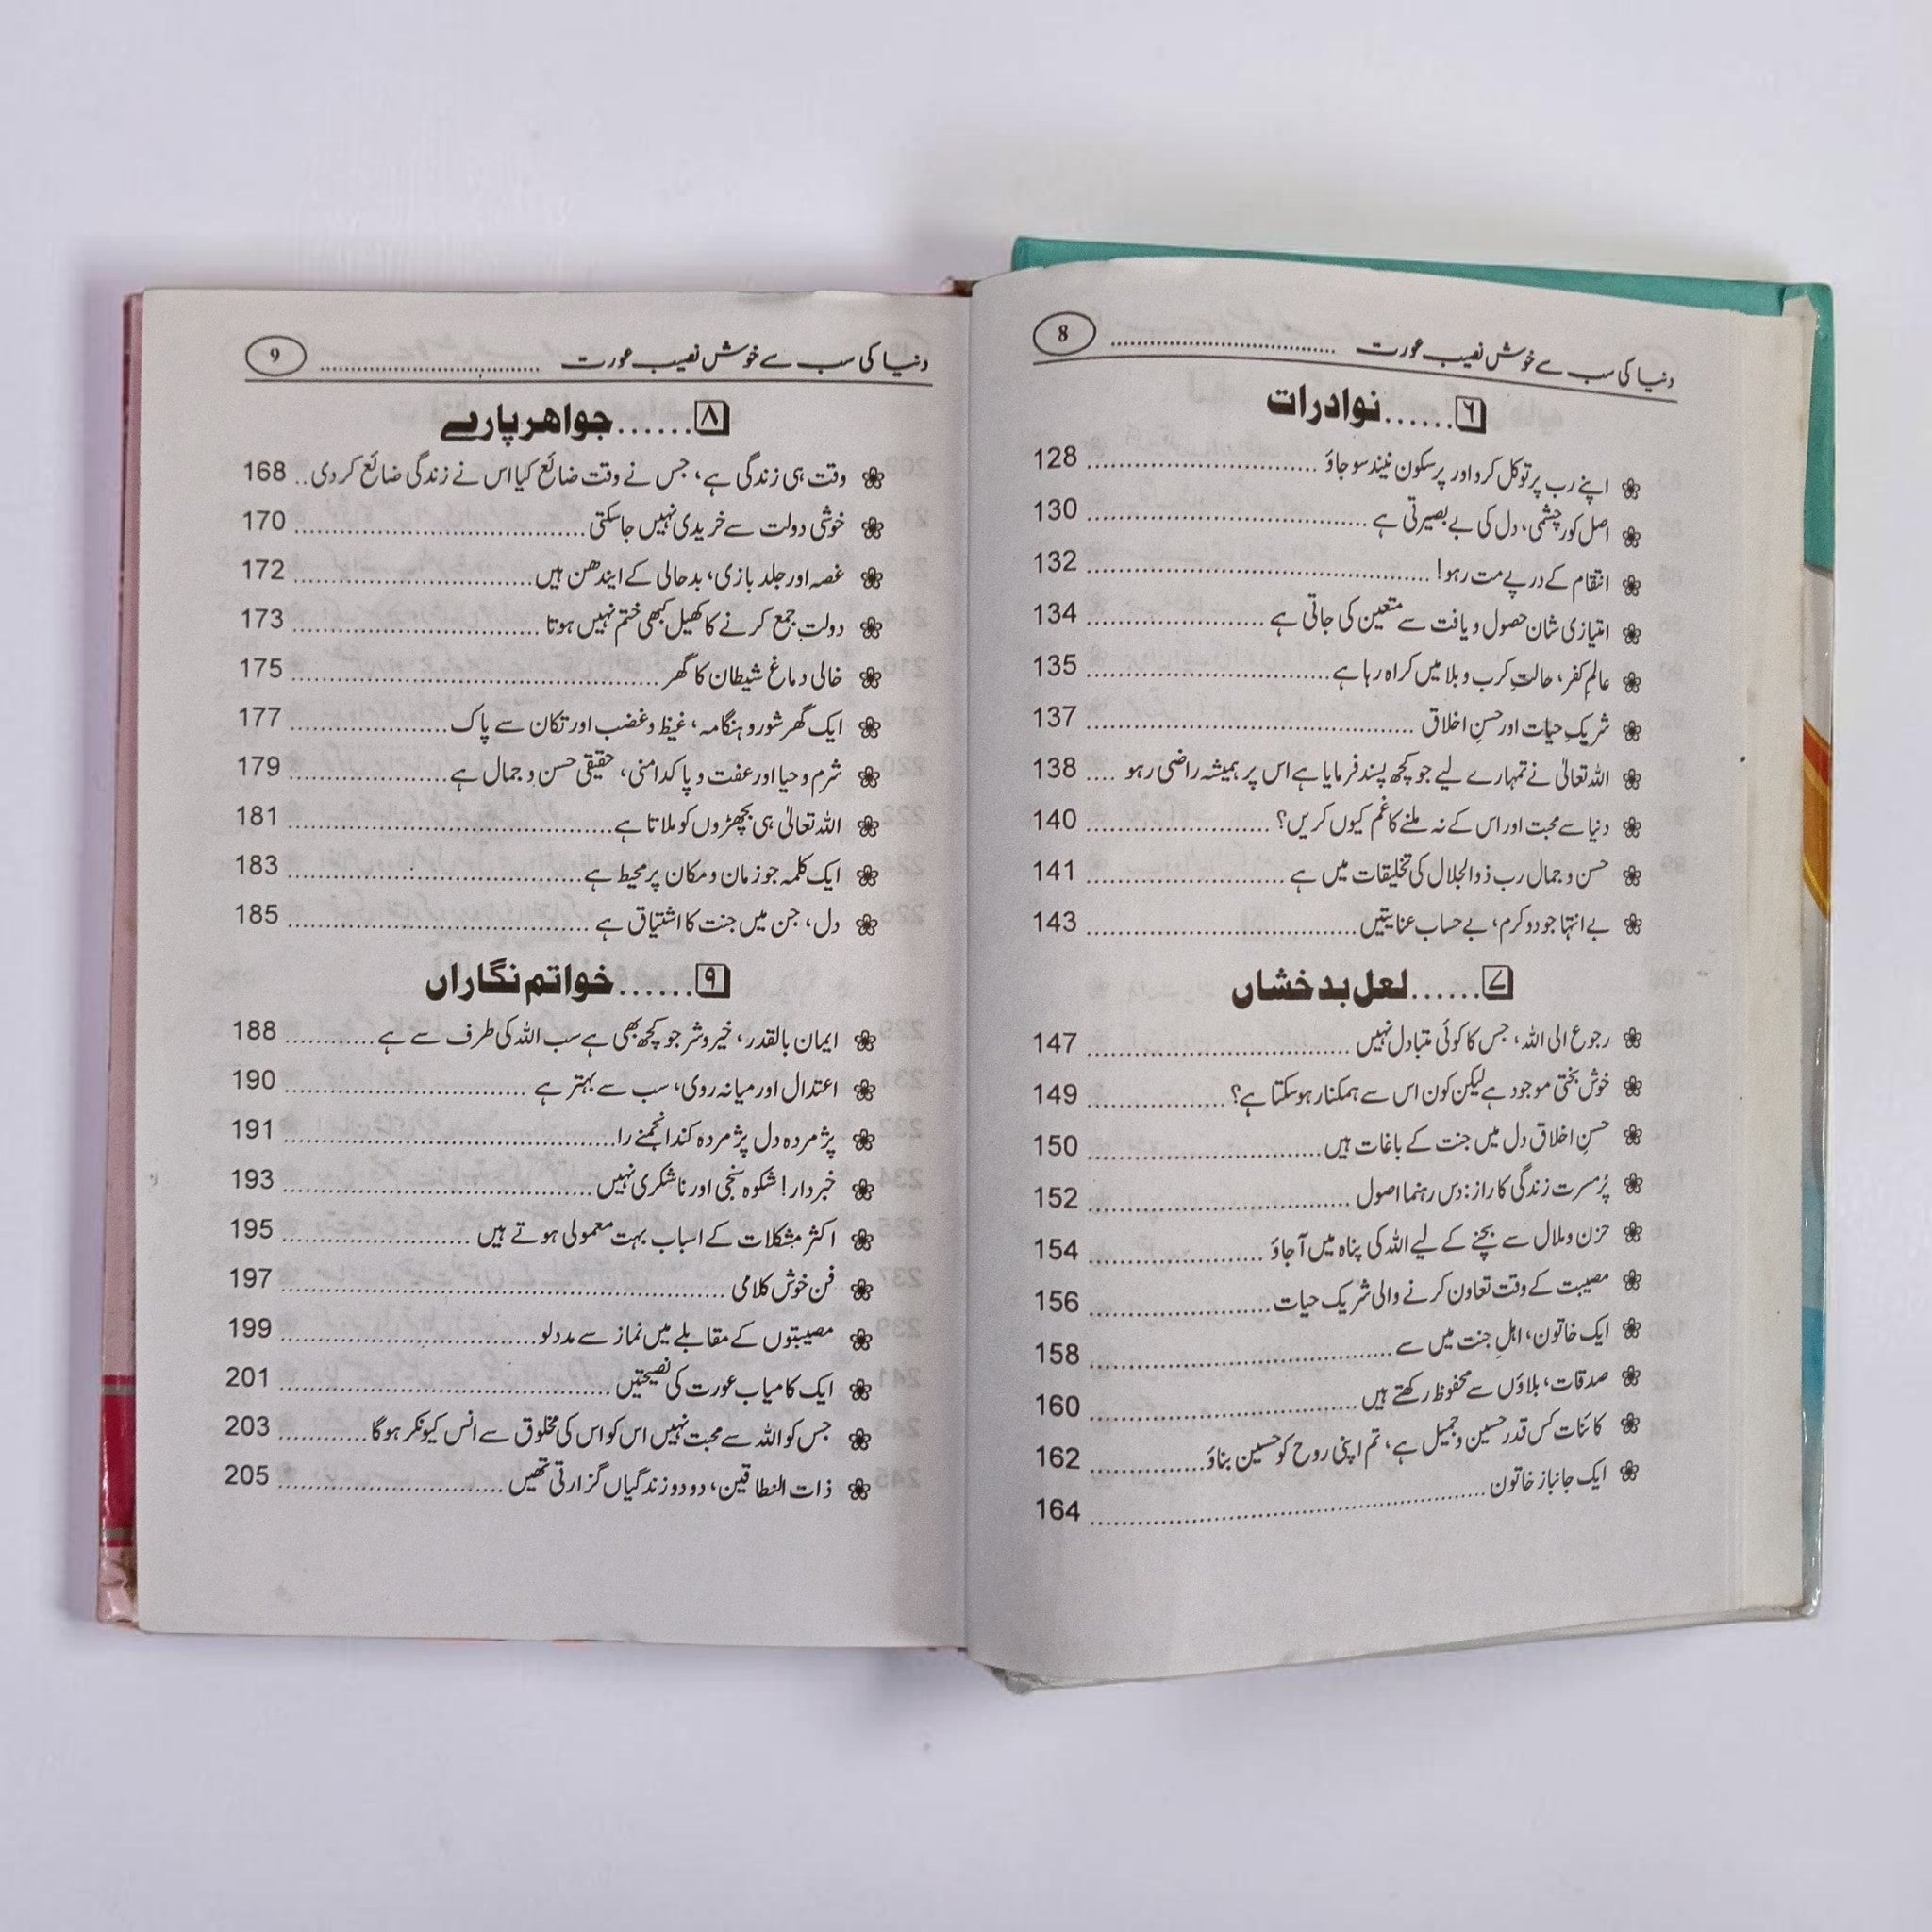 دنیا کی سب سے خوش نصیب عورت .......... 8
۶......نوادرات
❀ اپنے رب پر توکل کرو اور پرسکون نیند سو جاؤ .......... 128
❀ اصل کور چشمی، دل کی بے بصیرتی ہے .......... 130
❀ انتقام کے درپے مت رہو! .......... 132
❀ امتیازی شان حصول و یافت سے متعین کی جاتی ہے .......... 134
❀ عالمِ کفر، حالتِ کرب و بلا میں کراہ رہا ہے .......... 135
❀ شریکِ حیات اور حسنِ اخلاق .......... 137
❀ اللہ تعالیٰ نے تمہارے لیے جو کچھ پسند فرمایا ہے اس پر ہمیشہ راضی رہو .... 138
❀ دنیا سے محبت اور اس کے نہ ملنے کا غم کیوں کریں؟ .......... 140
❀ حسن و جمال رب ذوالجلال کی تخلیقات میں ہے .......... 141
❀ بے انتہا جود و کرم، بے حساب عنایتیں .......... 143
۷......لعل بدخشاں
❀ رجوع الی اللہ، جس کا کوئی متبادل نہیں .......... 147
❀ خوش بختی موجود ہے لیکن کون اس سے ہمکنار ہو سکتا ہے؟ .......... 149
❀ حسنِ اخلاق دل میں جنت کے باغات ہیں .......... 150
❀ پُرمسرت زندگی کا راز: دس رہنما اصول .......... 152
❀ حزن و ملال سے بچنے کے لیے اللہ کی پناہ میں آ جاؤ .......... 154
❀ مصیبت کے وقت تعاون کرنے والی شریک حیات .......... 156
❀ ایک خاتون، اہلِ جنت میں سے .......... 158
❀ صدقات، بلاؤں سے محفوظ رکھتے ہیں .......... 160
❀ کائنات کس قدر حسین و جمیل ہے، تم اپنی روح کو حسین بناؤ .......... 162
❀ ایک جانباز خاتون .......... 164
دنیا کی سب سے خوش نصیب عورت .......... 9
۸......جواہر پارے
❀ وقت ہی زندگی ہے، جس نے وقت ضائع کیا اس نے زندگی ضائع کر دی .. 168
❀ خوشی دولت سے خریدی نہیں جا سکتی .......... 170
❀ غصہ اور جلد بازی، بدحالی کے ایندھن ہیں .......... 172
❀ دولت جمع کرنے کا کھیل کبھی ختم نہیں ہوتا .......... 173
❀ خالی دماغ شیطان کا گھر .......... 175
❀ ایک گھر شور و ہنگامہ، غیظ و غضب اور تکان سے پاک .......... 177
❀ شرم و حیا اور عفت و پاکدامنی، حقیقی حسن و جمال ہے .......... 179
❀ اللہ تعالیٰ ہی بچھڑوں کو ملاتا ہے .......... 181
❀ ایک کلمہ جو زمان و مکان پر محیط ہے .......... 183
❀ دل، جن میں جنت کا اشتیاق ہے .......... 185
۹......خواتم نگاراں
❀ ایمان بالقدر، خیر و شر جو کچھ بھی ہے سب اللہ کی طرف سے ہے .......... 188
❀ اعتدال اور میانہ روی، سب سے بہتر ہے .......... 190
❀ پژمردہ دل پژمردہ کند انجمنے را .......... 191
❀ خبردار! شکوہ سنجی اور ناشکری نہیں .......... 193
❀ اکثر مشکلات کے اسباب بہت معمولی ہوتے ہیں .......... 195
❀ فن خوش کلامی .......... 197
❀ مصیبتوں کے مقابلے میں نماز سے مدد لو .......... 199
❀ ایک کامیاب عورت کی نصیحتیں .......... 201
❀ جس کو اللہ سے محبت نہیں اس کو اس کی مخلوق سے انس کیونکر ہوگا .......... 203
❀ ذات النطاقین، دو دو زندگیاں گزارتی تھیں .......... 205